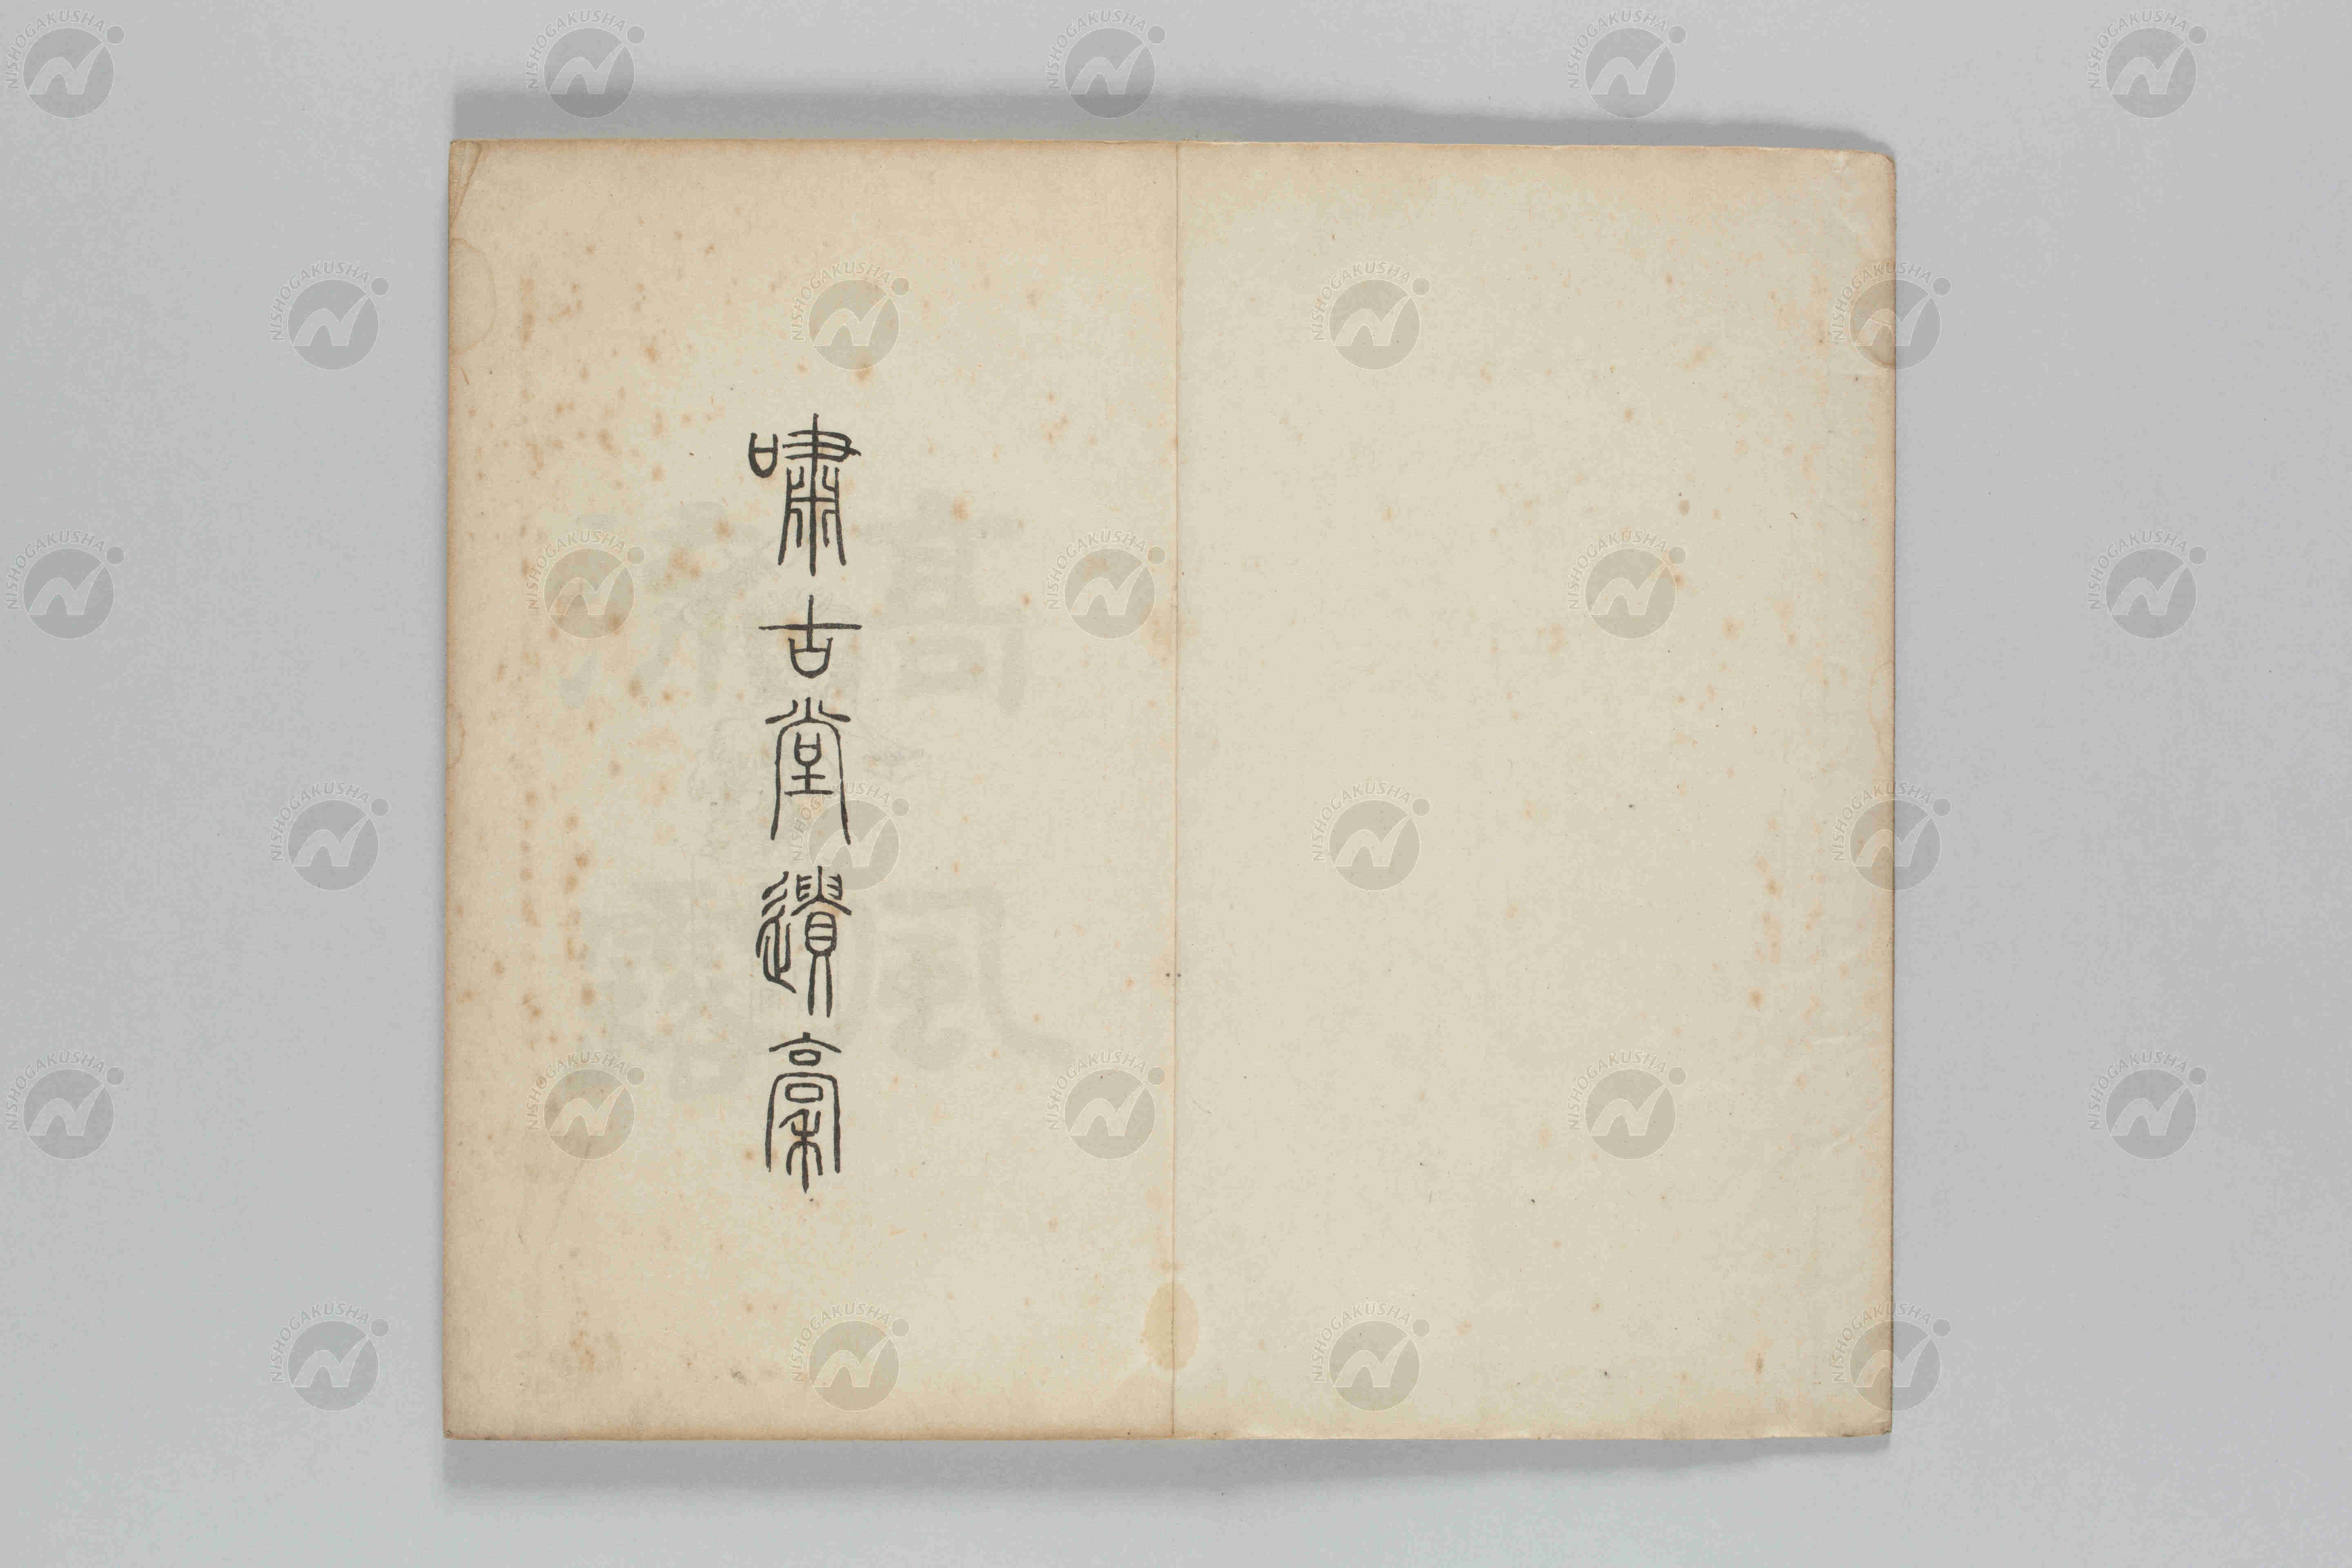 嘯古堂遺稾
NISHOGAKUSHA